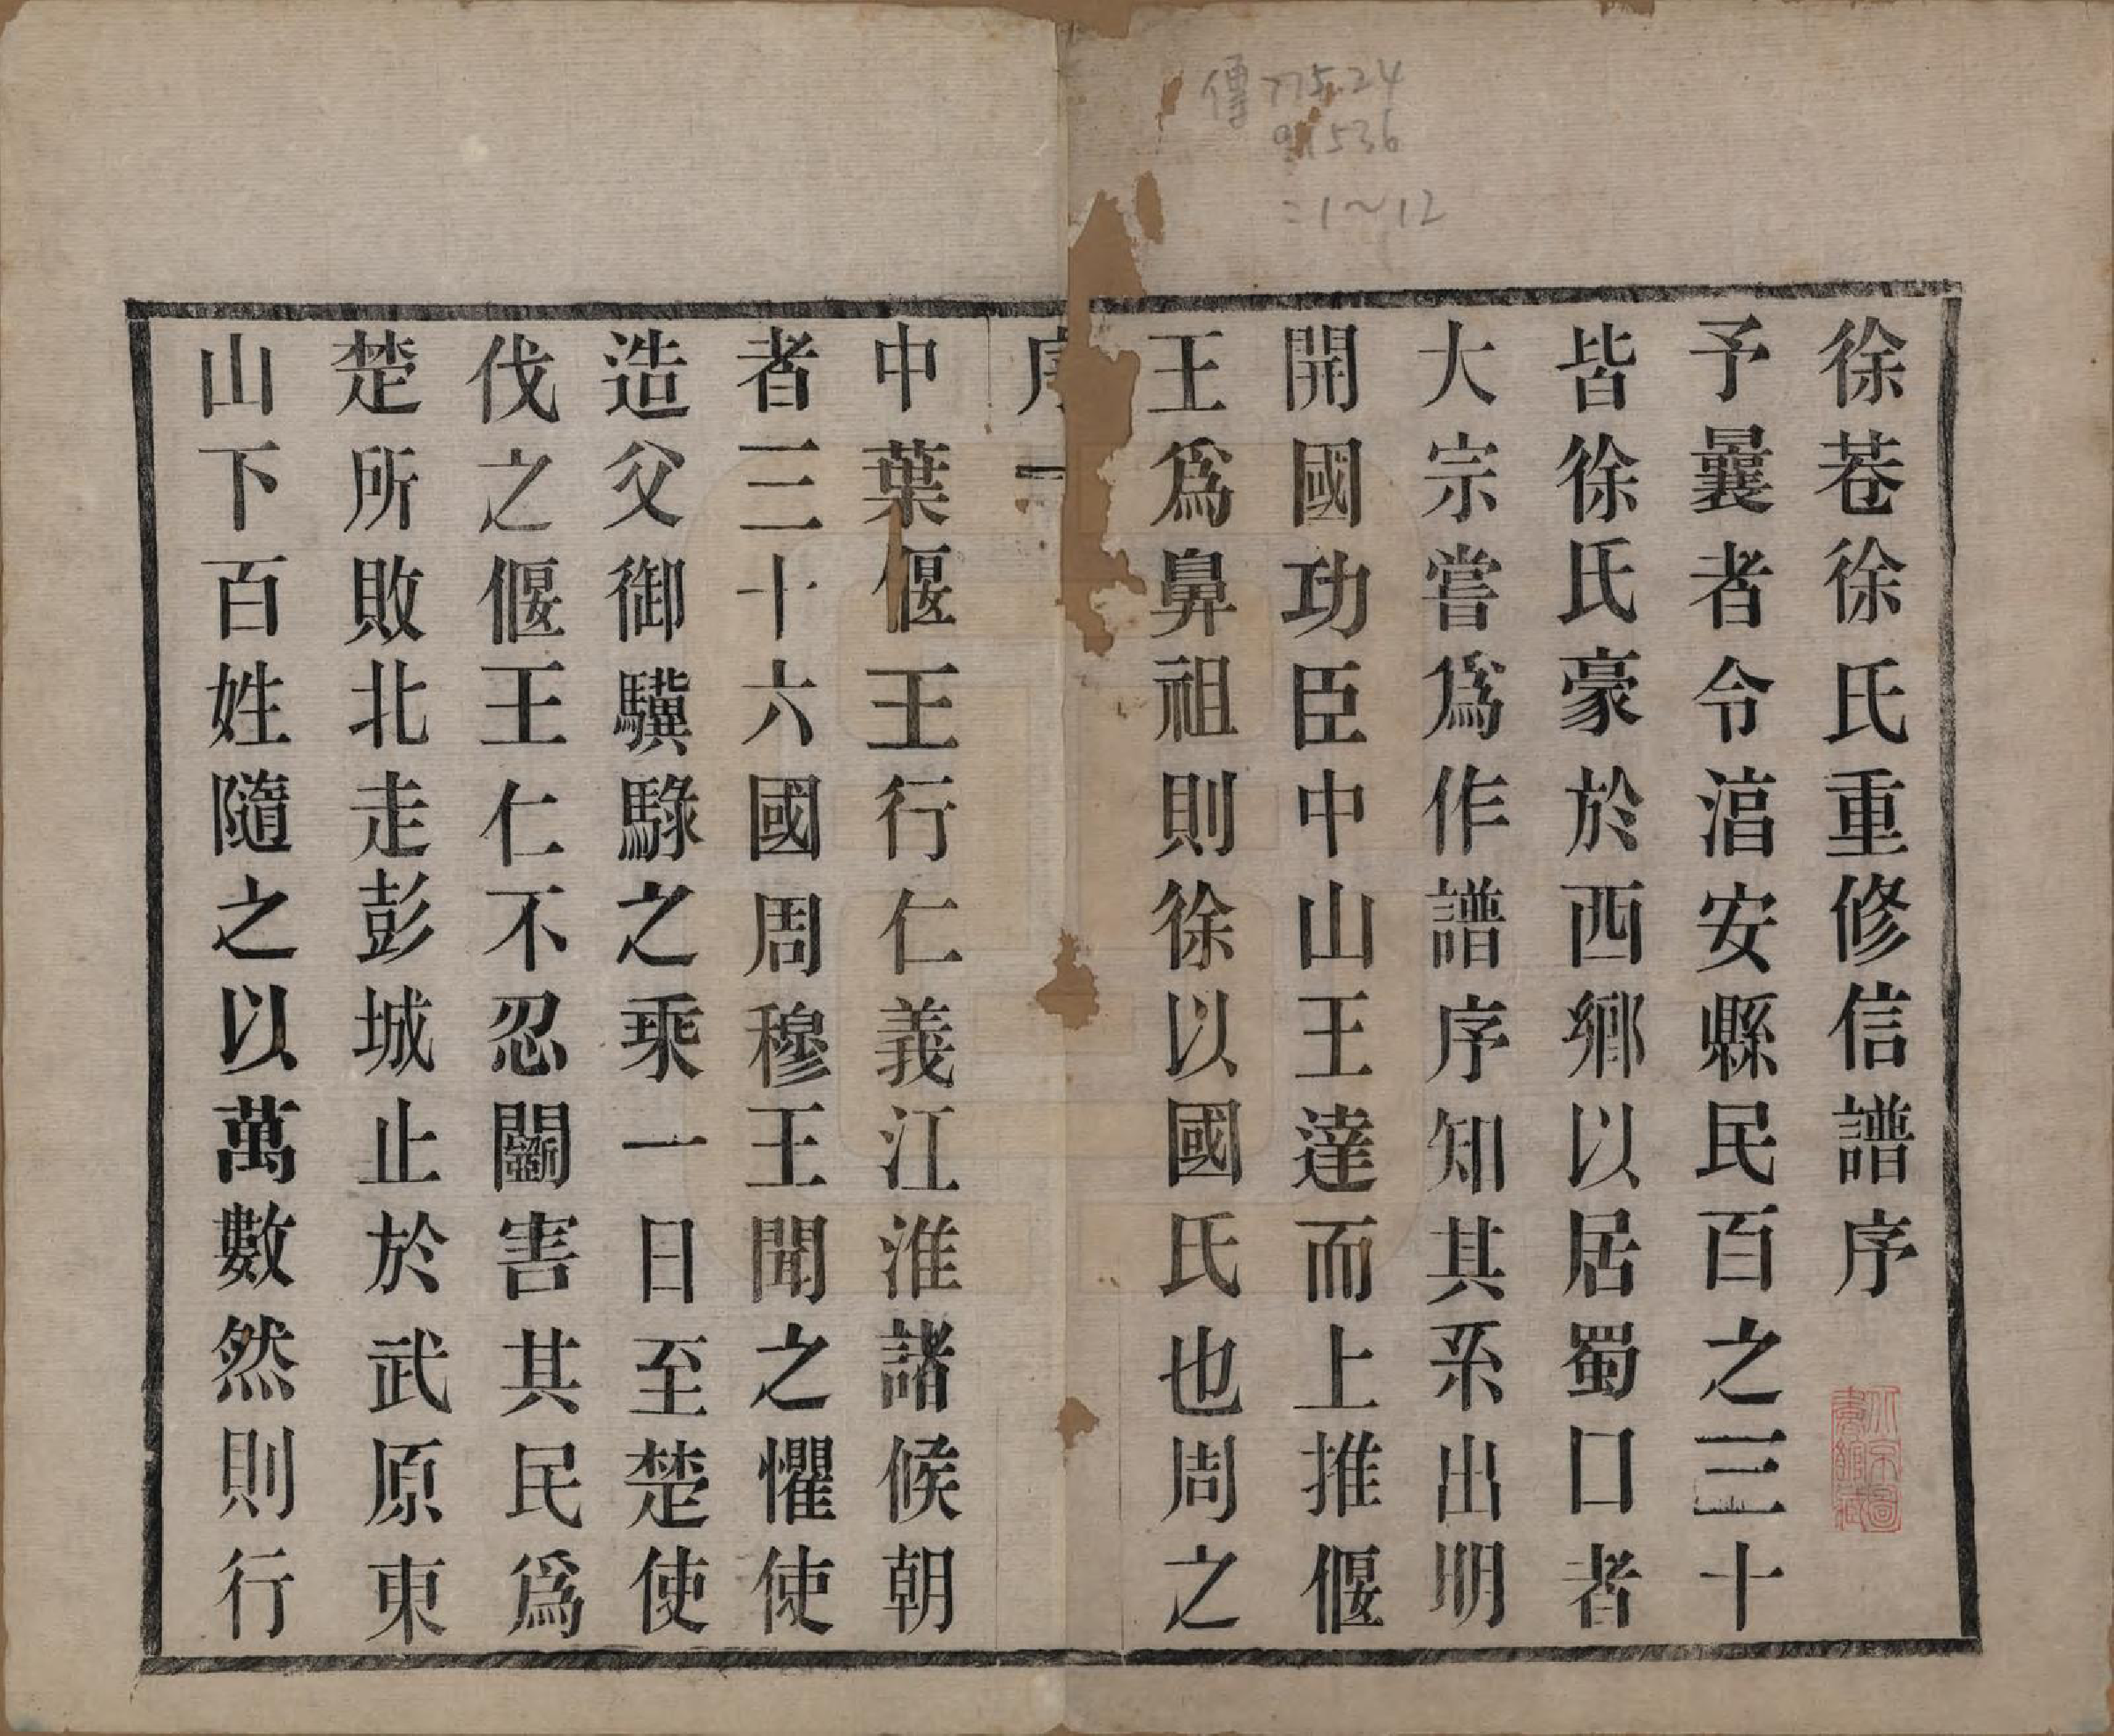 徐巷徐氏重修信譜序
予曩者令湻安縣民百之三十
皆徐氏豪於西鄉以居蜀口者
大宗嘗爲作譜序知其系出明
開國功臣中山王王達而上推偃
王爲鼻祖則徐以國氏也周之
序 一
中葉偃王行仁義江淮諸侯朝
者三十六國周穆王聞之懼使
造父御驥騄之乘一日至楚使
伐之偃王仁不忍鬭害其民爲
楚所敗北走彭城止於武原東
山下百姓隨之以萬數然則行
775.24
536
=1~12